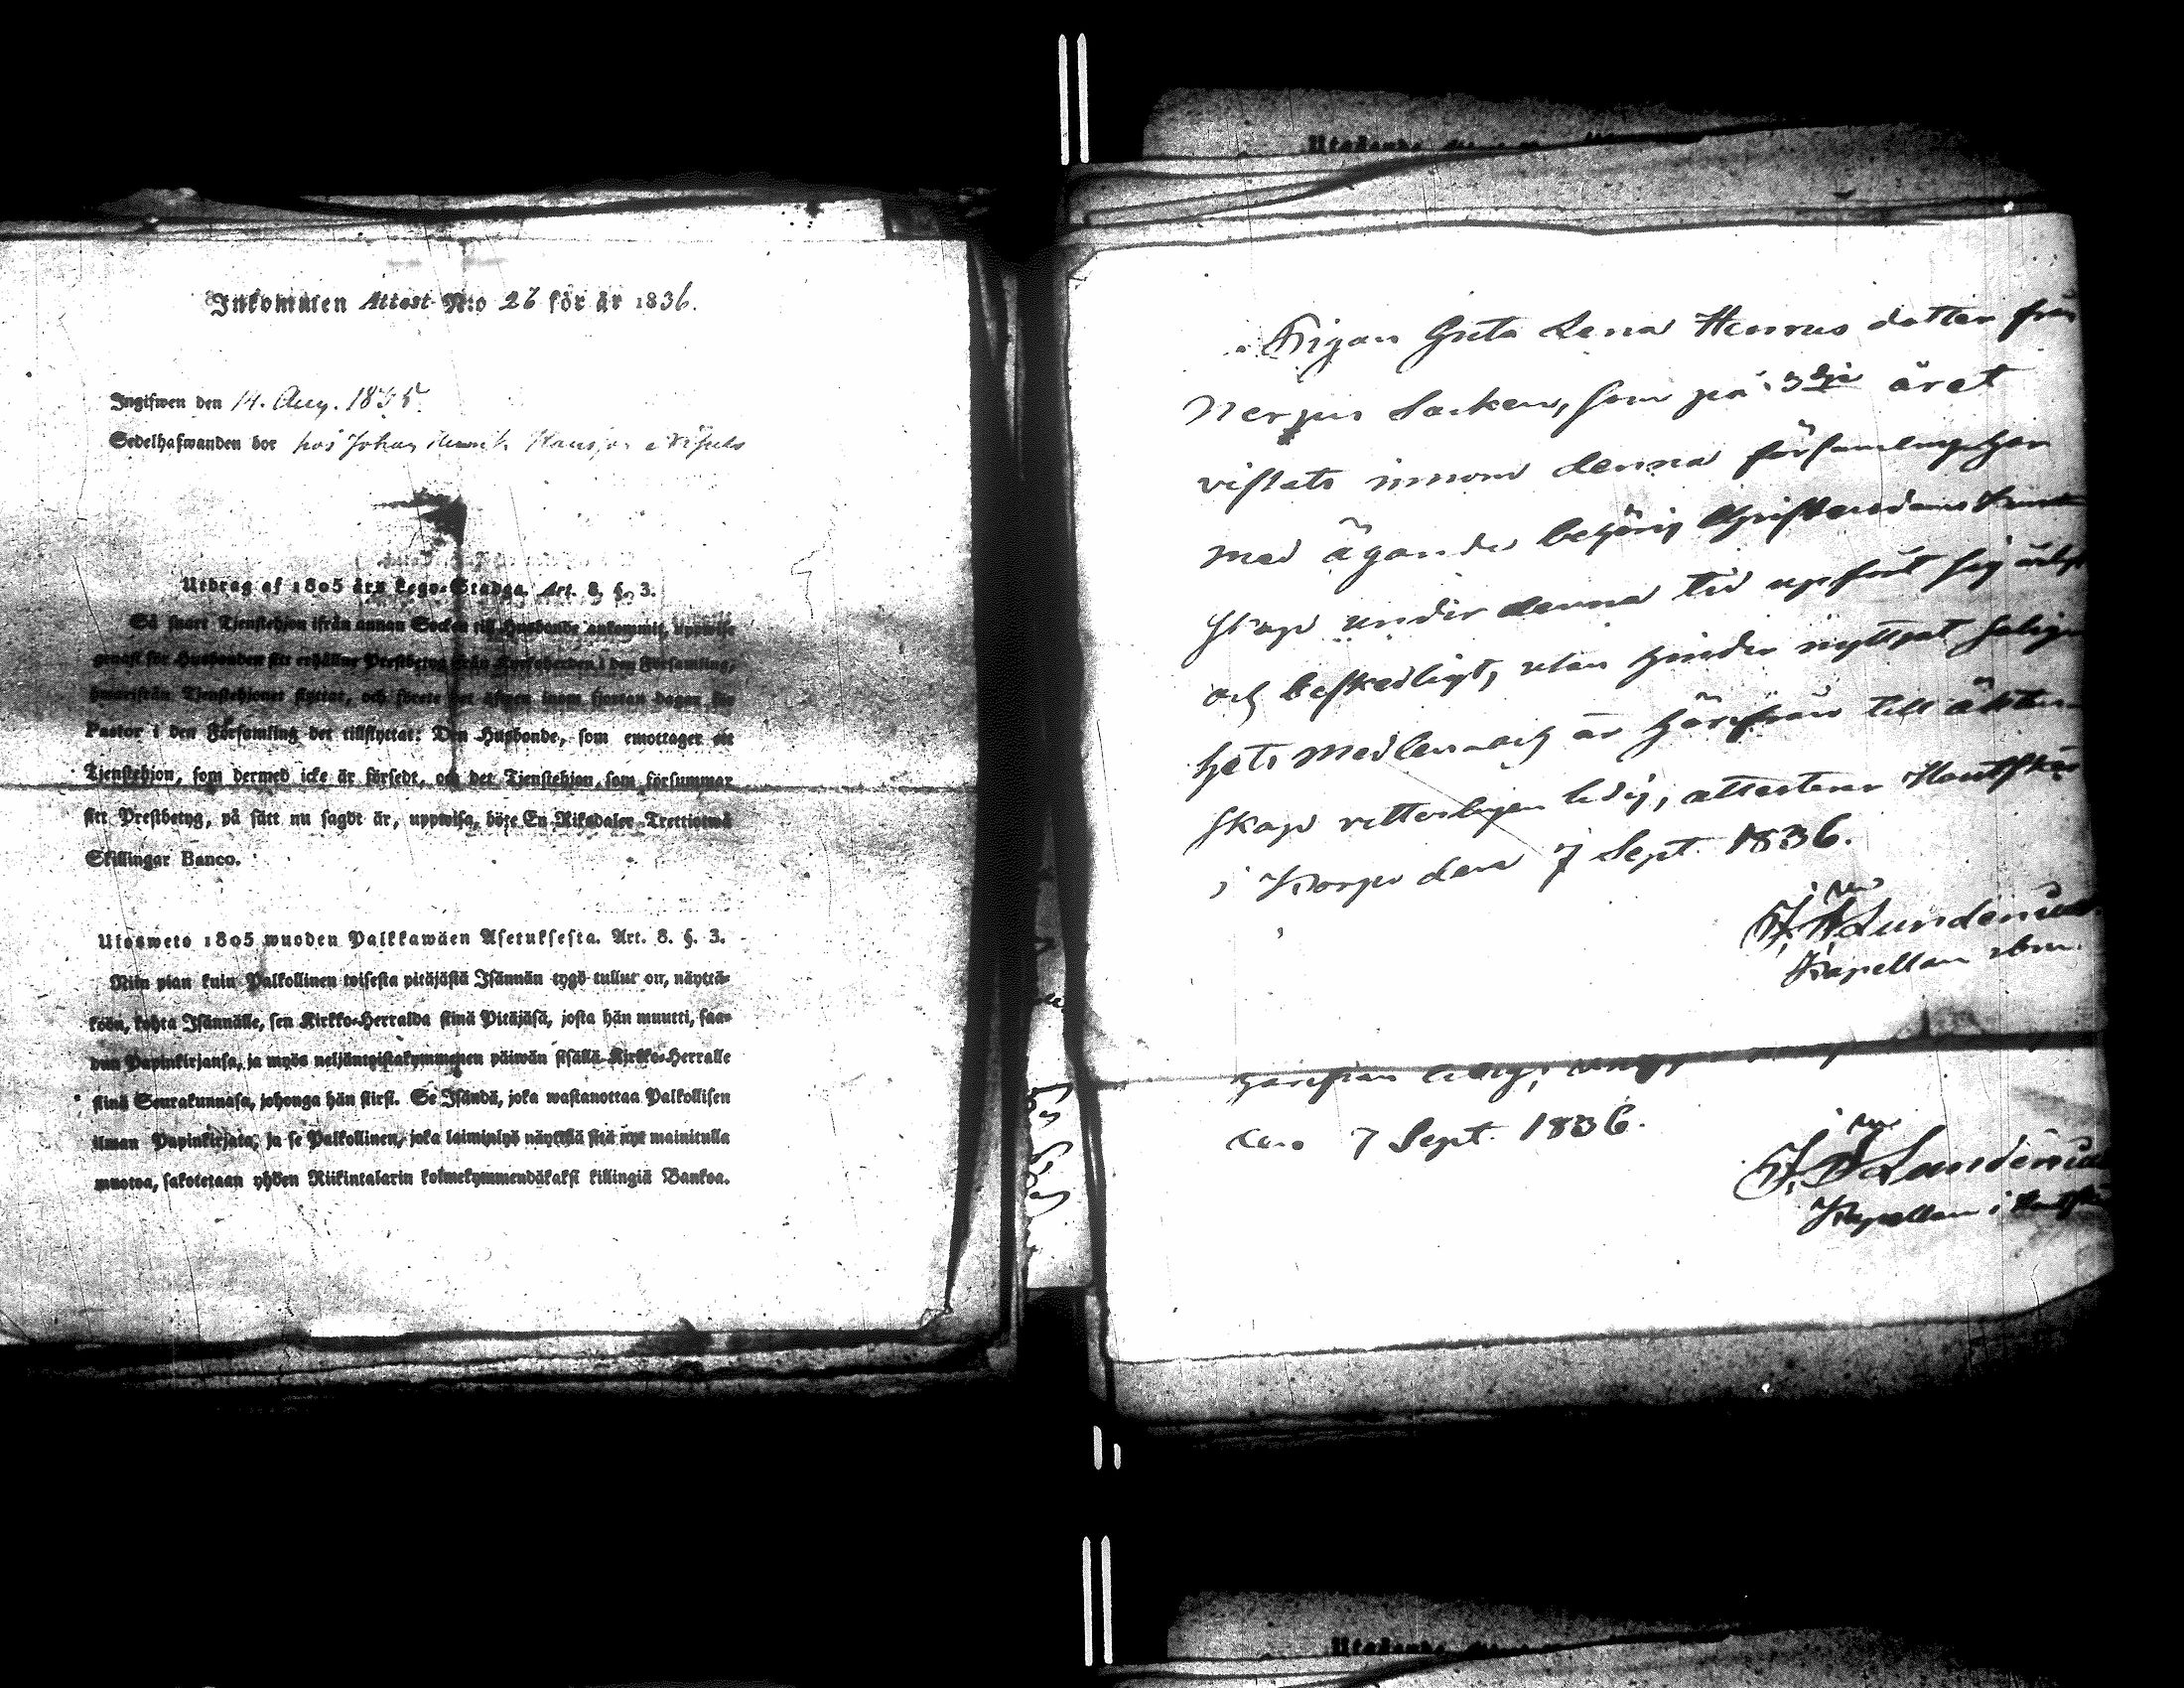 Inkommen Attest N:o 26 för år 1836.
Ingifwen den 14. Aug. 1835.
Sedelhafwanden bor hos Johan Henrik
Utdrag af 1805 års Lego-Stadga. Art. 8. §. 3.
Så snart Tjenstehjon ifrån annan Socken till Husbonde ankommit, uppwise
genast för Husbonden sitt erhållne Prestbetyg från Kyrkoherden i den Församling,
hwarifrån Tjenstehjonet flyttat, och förete det äfwen inom fjorton dagar för
Pastor i den Församling det tillflyttat: Den Husbonde, som emottager ett
Tjenstehjon, som dermed icke är försedt, och det Tjenstehjon som försummar
sitt Prestbetyg, på sätt nu sagdt är, uppwisa, böte En Riksdaler Trettiotwå
Skillingar Banco.
Ulosweto 1805 wuoden Palkkawäen Asetuksesta. Art. 8. §. 3.
Niin pian kuin Palkollinen toisesta pitäjästä Isännän tygö tullut on, näyttä-
köön, kohta Isännälle, sen Kirkko-Herralda siinä Pitäjäsä, josta hän muutti, saa-
dun Papinkirjansa, ja myös neljäntoistakymmenen päiwän sisällä Kirkko-Herralle
siinä Seurakunnasa, johonga hän siirsi. Se Isändä, joka wastanottaa Palkollisen
ilman Papinkirjata, ja se Palkollinen, joka laiminlyö näyttää sitä nyt mainitulla
muotoa, sakotetaan yhden Riikintalarin kolmekymmendäkaksi killingiä Bankoa.
Pigan Greta Lena Henricsdotter från
Nerpis Socken, som på 3dje året
vistats innom denna församling har
med ägande behörig Christendoms kund
skap under denna tid uppfört sig ärligt
och beskedligt, utan hinder nyttjat salig
hets medlen och är härifrån till äkten
skap vetterligen ledig, attesterar Houtskär
i Korpo den 7 Sept. 1836.
F. W. Lundenius
Kapellan
härifrån ledig,
den 7 Sept. 1836.
F. W. Lundenius
Kapellan i Houtskär